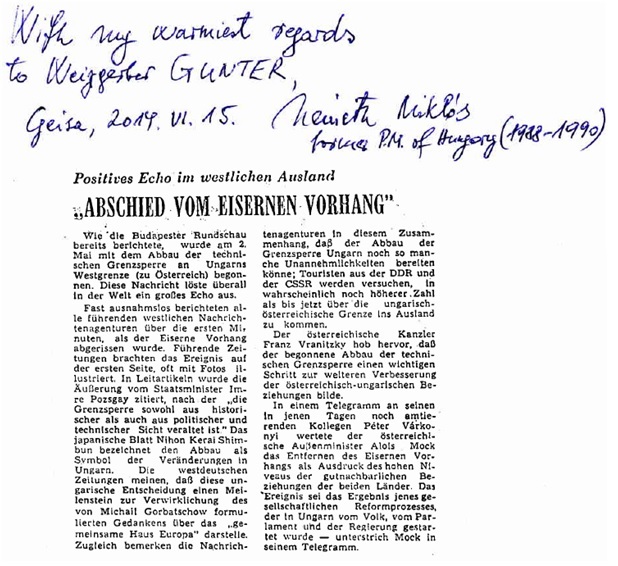 With my warmiest regards
to Weiggerber GUNTER,
Geisa, 2014. VI. 15. Németh Miklós
former P.M. of Hungary (1988-1990)
Positives Echo im westlichen Ausland
„ABSCHIED VOM EISERNEN VORHANG"
Wie die Budapester Rundschau
bereits berichtete, wurde am 2.
Mai mit dem Abbau der techni-
schen Grenzsperre an Ungarns
Westgrenze (zu Österreich) begon-
nen. Diese Nachricht löste überall
in der Welt ein großes Echo aus.
Fast ausnahmslos berichteten al-
le führenden westlichen Nachrich-
tenagenturen über die ersten Mi-
nuten, als der Eiserne Vorhang
abgerissen wurde. Führende Zei-
tungen brachten das Ereignis auf
der ersten Seite, oft mit Fotos il-
lustriert. In Leitartikeln wurde die
Äußerung vom Staatsminister Im-
re Pozsgay zitiert, nach der „die
Grenzsperre sowohl aus histori-
scher als auch aus politischer und
technischer Sicht veraltet ist." Das
japanische Blatt Nihon Kerai Shim-
bun bezeichnet den Abbau als
Symbol der Veränderungen in
Ungarn. Die westdeutschen
Zeitungen meinen, daß diese un-
garische Entscheidung einen Mei-
lenstein zur Verwirklichung des
von Michail Gorbatschow formu-
lierten Gedankens über das „ge-
meinsame Haus Europa" darstelle.
Zugleich bemerken die Nachrich-
tenagenturen in diesem Zusam-
menhang, daß der Abbau der
Grenzsperre Ungarn noch so man-
che Unannehmlichkeiten bereiten
könne; Touristen aus der DDR und
der CSSR werden versuchen, in
wahrscheinlich noch höherer Zahl
als bis jetzt über die ungarisch-
österreichische Grenze ins Ausland
zu kommen.
Der österreichische Kanzler
Franz Vranitzky hob hervor, daß
der begonnene Abbau der techni-
schen Grenzsperre einen wichtigen
Schritt zur weiteren Verbesserung
der österreichisch-ungarischen Be-
ziehungen bilde.
In einem Telegramm an seinen
in jenen Tagen noch amtie-
renden Kollegen Péter Várko-
nyi wertete der österreichi-
sche Außenminister Alois Mock
das Entfernen des Eisernen Vor-
hangs als Ausdruck des hohen Ni-
veaus der gutnachbarlichen Be-
ziehungen der beiden Länder. Das
Ereignis sei das Ergebnis jenes ge-
sellschaftlichen Reformprozesses,
der in Ungarn vom Volk, vom Par-
lament und der Regierung gestar-
tet wurde — unterstrich Mock in
seinem Telegramm.